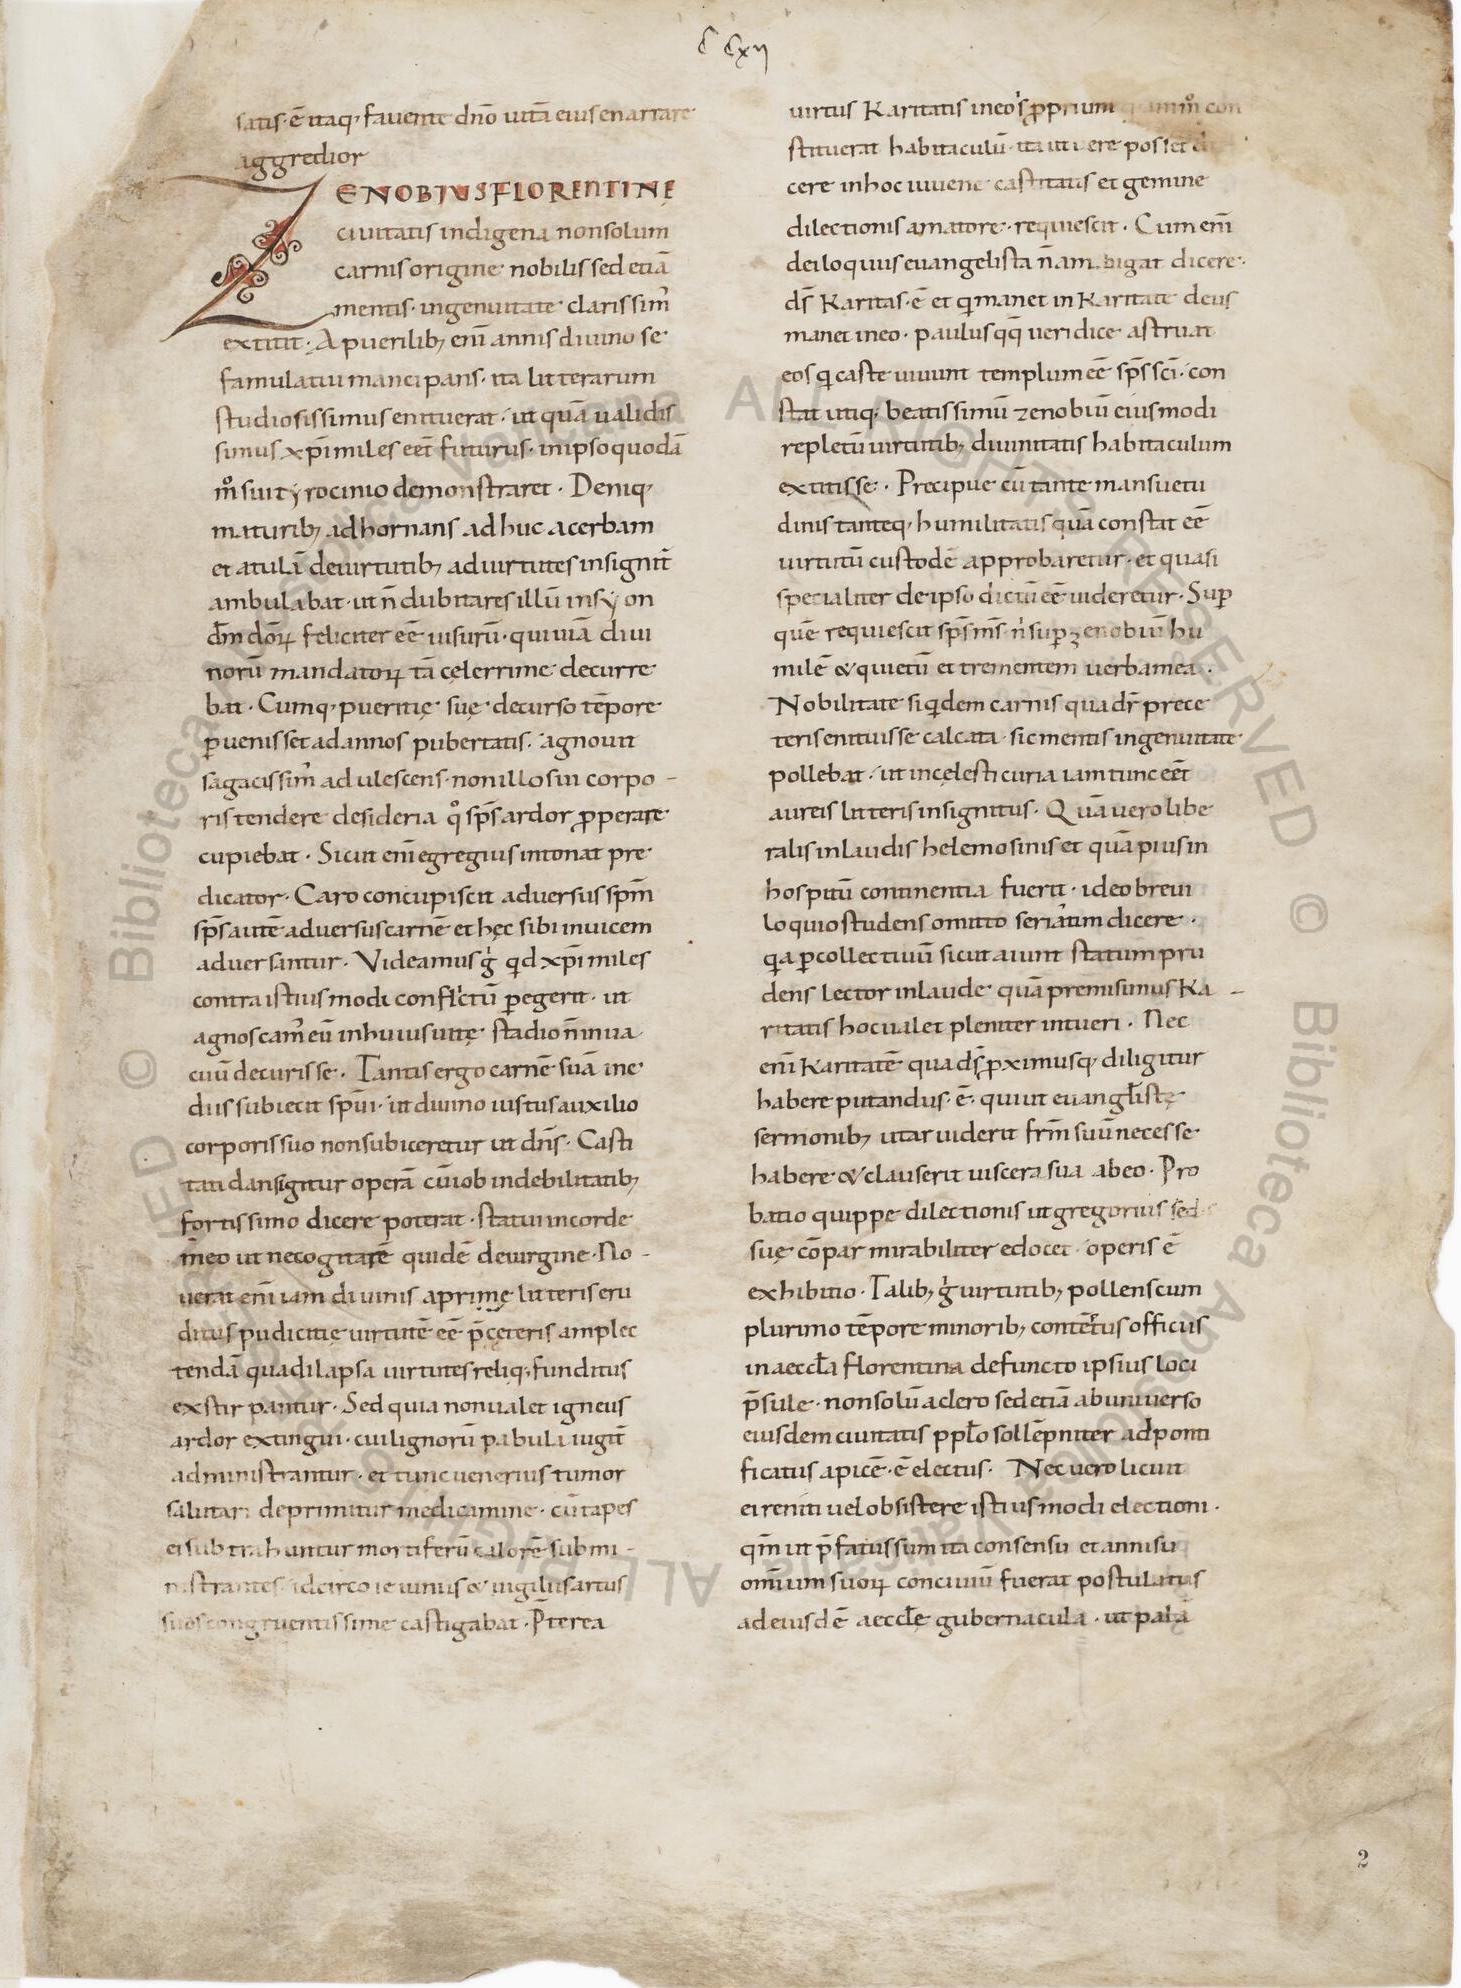 ccxıı
satis·ē itaq; fauente dn̄o uitā eius enarrare
aggredior
ZENOBIUS FLORENTINĘ
ciuitatis indigena non solum
carnis origine nobilis sed etiā
mentis· ingenuitate clarissim̄
extitit· A puerilib; enī annis diuino se
famulatui mancipans· ita litterarum
studiosissimus enituerat· ut quā ualidis
simus xp̄i miles eēt futurus· in ipso quodā
m̊ sui tyrocinio demonstraret· Deniq;
maturib; adhornans adhuc acerbam
etatulā de uirtutib; ad uirtutes insignit̄
ambulabat· ut n̄ dubitares illū in syon
dm̄ doꝝ feliciter eē uisurū· qui uiā diui
norū mandatoꝝ tā cęlerrime decurre
bat· Cumq; pueritię suę decurso tēpore
ꝑuenisset ad annos pubertatis· agnouit
sagacissim̄ adulescens· non illo sui corpo-
ris tendere desideria q̊ sp̄s ardor ꝓperare
cupiebat· Sicut enī egregius intonat pre
dicator· Caro concupiscit aduersus spm̄
sp̄s autē aduersus carnē et hęc sibi inuicem
aduersantur· Videamus g̍ qd xp̄i miles
contra istius modi conflictū ꝑegerit· ut
agnoscam̄ eū in huius uitę stadio n̄ in ua
cuū decurisse· Tantis ergo carnē suā ine
diis subiecit sp̄ui· ut diuino iustus auxilio
corporis suo non subiceretur ut dn̄s· Casti
tati dans igitur operā cū iob in debilitatib;
fortissimo dicere poterat· statui in corde
meo ut nec ogitarē quidē de uirgine· No-
uerat enī iam diuinis aprime litteris eru
ditus pudicitię uirtutē eē p̄ cęteris amplec
tendā qua dilapsa uirtutes reliq; funditus
exstirpantur· Sed quia non ualet igneus
ardor extingui· cui lignorū pabula iugit̄
administrantur· et tunc uenerius tumor
salutari deprimitur medicamine· cū dapes
ei subtrahuntur mortiferū calorē submi-
nistrantes· idcirco ieiuniis & uigiliis artus
suos congruentissime castigabat· P̄terea
uirtus Karitatis in eo s̍ ꝓprium con
stituerat habitaculū· ita ut uere posset di
cere in hoc uiuene castitatis et gemine
dilectionis amatore· requiescit· Cum enī
deiloquus euangelista n̄ ambigat dicere·
ds̄ Karitas·ē et qi manet in Karitate deus
manet in eo· paulus qq̄ ueridice astruat
eos qi caste uiuunt templum eē sp̄s sc̄i· con
stat utiq; beatissimū zenobiū eius modi
repletū uirtutib; diuinitatis habitaculum
extitisse· Precipue cū tante mansuetu
dinis tanteq; humilitatis quā constat eē
uirtutū custodē approbaretur· et quasi
specialiter de ipso dictū eē uideretur· Suꝑ
quē requiescit sp̄s m̄s n̍ suꝑ zenobiū hu
milē & quietū et trementem uerba mea·
Nobilitate siqidem carnis qua dr̄ prece
teris enituisse calcata· sic mentis ingenuitate
pollebat· ut in cęlesti curia iam tunc eēt
aureis litteris insignitus· Quā uero libe
ralis in laudis helemosinis et quā pius in
hospitū continentia fuerit· ideo breui
loquio studens omitto seriatim dicere·
qa ꝑ collectiuū sicut aiunt statum pru
dens lector in laude quā premisimus Ka-
ritatis hoc ualet pleniter intueri· Nec
enī Karitatē qua ds̄ ꝓximusq; diligitur
habere putandus·ē· qui ut euangl̄istę
sermonib; utar uiderit frm̄ suū necesse
habere & clauserit uiscera sua abeo· Pro
batio quippe dilectionis ut gregorius sed
suę cōpar mirabiliter edocet· operis ē
exhibitio· Talib; g̍ uirtutib; pollens cum
plurimo tēpore minorib; contētus officiis
in aeccl̄a florentina defuncto ipsius loci
p̄sule· non solū a clero sed etiā ab uniuerso
eiusdem ciuitatis ppl̄o sollēpniter ad ponti
ficatus apicē·ē electus· Nec uero licuit
ei reniti uel obsistere istius modi electioni·
qm̄ ut p̄fatus sum ita consensu et annisu
omīum suoꝝ conciuiū fuerat postulatus
ad eiusdē aeccl̄e gubernacula· ut palā
2
© Biblioteca Apostolica Vaticana ALL RIGHTS RESERVED © Biblioteca Apostolica Vaticana ALL RIGHTS RESERVED